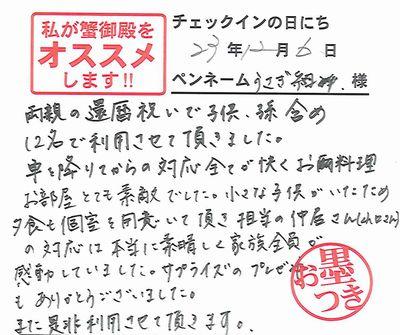 私が蟹御殿を
オススメ
します!!
チェックインの日にち
23年12月6日
ペンネームうさぎ 様
両親の還暦祝いで子供、孫含め
12名で利用させて頂きました。
車を降りてからの対応全てが快くお料理
お部屋とても素敵でした。小さな子供がいたため
夕食も個室を用意いて頂き担当の仲居さん
の対応は本当に素晴しく家族全員が
感動していました。サプライズのプレゼント
もありがとうございました。
また是非利用させて頂きます。
お墨つき